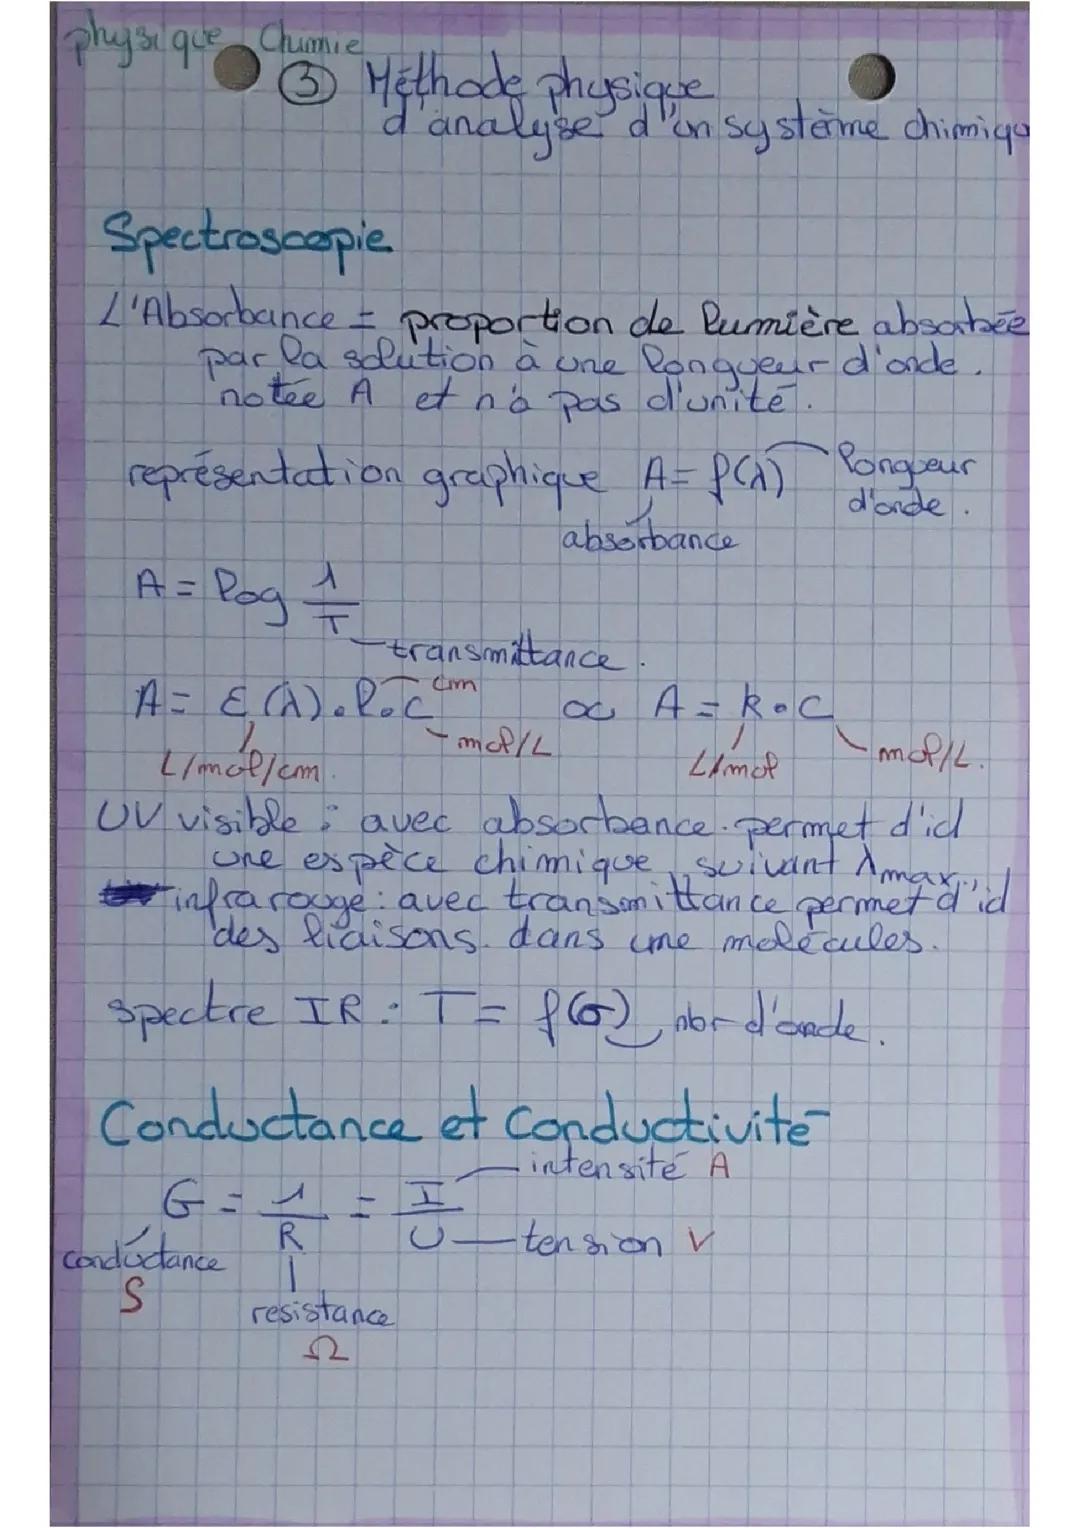 physique Chimie
③ Méthode physique
d'analyse d'un système chimiqu
Spectroscopie
L'Absorbance = proportion de lumière absorbée
par la solution à une longueur d'onde.
notée A et n'a pas d'unité.
représentation graphique A = f(λ) longueur
d'onde.
absorbance
A = log 1/T
transmittance.
A = ε(λ).l.c cm ou A = k.C
L/mol/cm. mol/L L/mol mol/L.
UV visible : avec absorbance. permet d'id
une espèce chimique suivant λmax.
infrarouge : avec transmittance permet d'id
des liaisons. dans une molécules.
spectre IR : T = f(σ) nbr d'onde.
Conductance et Conductivité
intensité A
G = 1/R = I/U
tension V
conductance
S
resistance
Ω